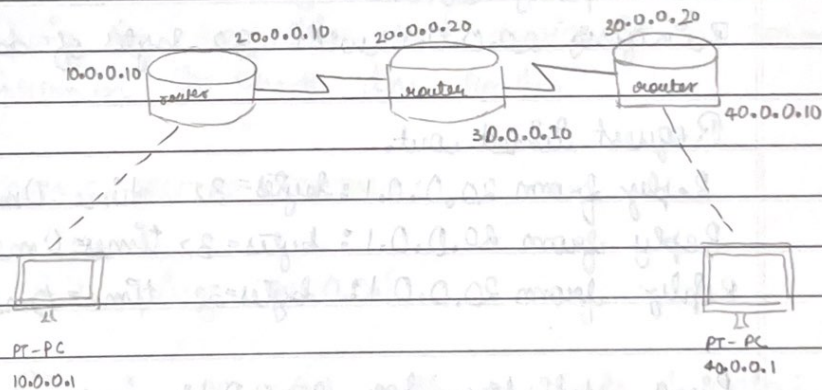 20.0.0.10
20.0.0.20
30.0.0.20
10.0.0.10
router
router
router
40.0.0.10
30.0.0.10
PT-PC
10.0.0.1
PT-PC
40.0.0.1